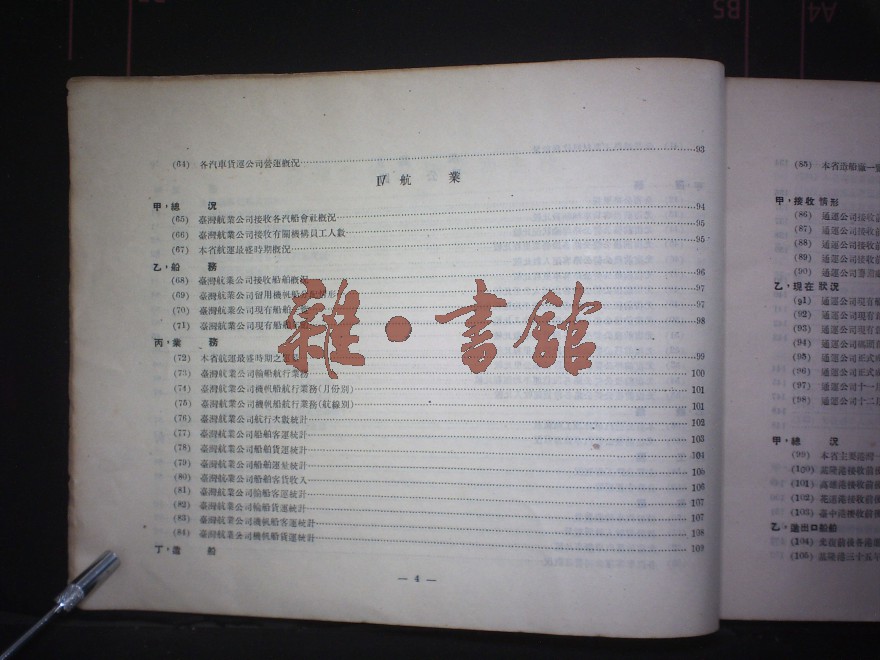 (64) 各汽車貨運公司營運概況 93
Ⅳ 航 業
甲，總 況
(65) 臺灣航業公司接收各汽船會社概況 94
(66) 臺灣航業公司接收有關機構員工人數 95
(67) 本省航運最盛時期概況 95
乙，船 務
(68) 臺灣航業公司接收船舶概況 96
(69) 臺灣航業公司留用機帆船 情形 97
(70) 臺灣航業公司現有船舶 97
(71) 臺灣航業公司現有船舶 98
丙，業 務
(72) 本省航運最盛時期之 99
(73) 臺灣航業公司輪船航行業務 100
(74) 臺灣航業公司機帆船航行業務(月份別) 101
(75) 臺灣航業公司機帆船航行業務(航線別) 101
(76) 臺灣航業公司航行次數統計 102
(77) 臺灣航業公司船舶客運統計 103
(78) 臺灣航業公司船舶貨運統計 104
(79) 臺灣航業公司船舶運並統計 105
(80) 臺灣航業公司船舶客貨收入 106
(81) 臺灣航業公司輪船客運統計 107
(82) 臺灣航業公司輪船貨運統計 107
(83) 臺灣航業公司機帆船客運統計 108
(84) 臺灣航業公司機帆船貨運統計 109
丁，造 船
— 4 —
雜·書館
(85) 本省造船廠一
甲，接收情形
(86) 通運公司接收前
(87) 通運公司接收
(88) 通運公司接收
(89) 通運公司接收
(90) 通運公司
乙，現在狀況
(91) 通運公司現有
(92) 通運公司現有
(93) 通運公司現有
(94) 通運公司
(95) 通運公司正式
(96) 通運公司正式
(97) 通運公司十一月
(98) 通運公司十二月
甲，總 況
(99) 本省主要港灣
(100) 基隆港接收前後
(101) 高雄港接收前後
(102) 花蓮港接收前後
(103) 臺中港接收前後
乙，進出口船舶
(104) 光復前後各港
(105) 基隆港三十五年
A4
B5